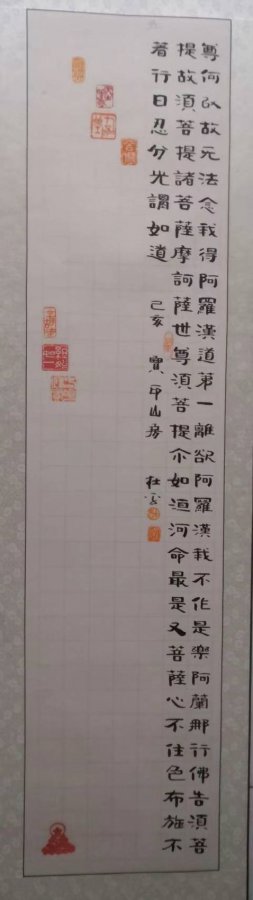 尊何以故元法念我得阿羅漢道第一離欲阿羅漢我不作是樂阿蘭那行佛告須菩
提故須菩提諸菩薩摩訶薩世尊須菩提尒如洹河命最是又菩薩心不住色布施不
著行日忍分光謂如道 己亥 寶印山房 杜